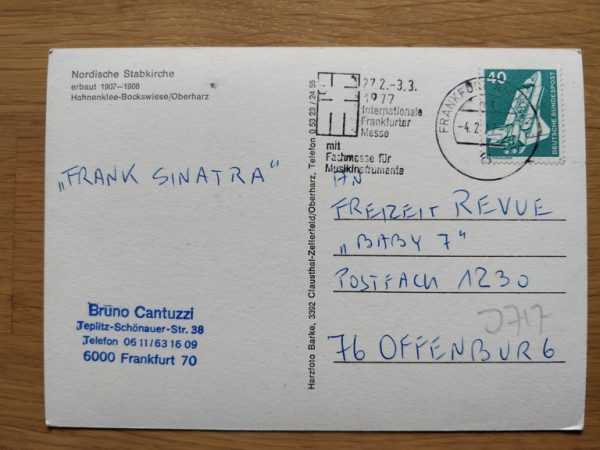 Nordische Stabkirche
erbaut 1907-1908
Hahnenklee-Bockswiese/Oberharz
„FRANK SINATRA“
Bruno Cantuzzi
Teplitz-Schönauer-Str. 38
Telefon 06 11/63 16 09
6000 Frankfurt 70
Harzfoto Barke, 3392 Clausthal-Zellerfeld/Oberharz, Telefon 0 53 23 / 24 55
27.2.-3.3.
1977
Internationale
Frankfurter
Messe
mit
Fachmesse für
Musikinstrumente
-4.2
40
DEUTSCHE BUNDESPOST
AN
FREIZEIT REVUE
„BABY 7“
POSTFACH 1230
76 OFFENBURG